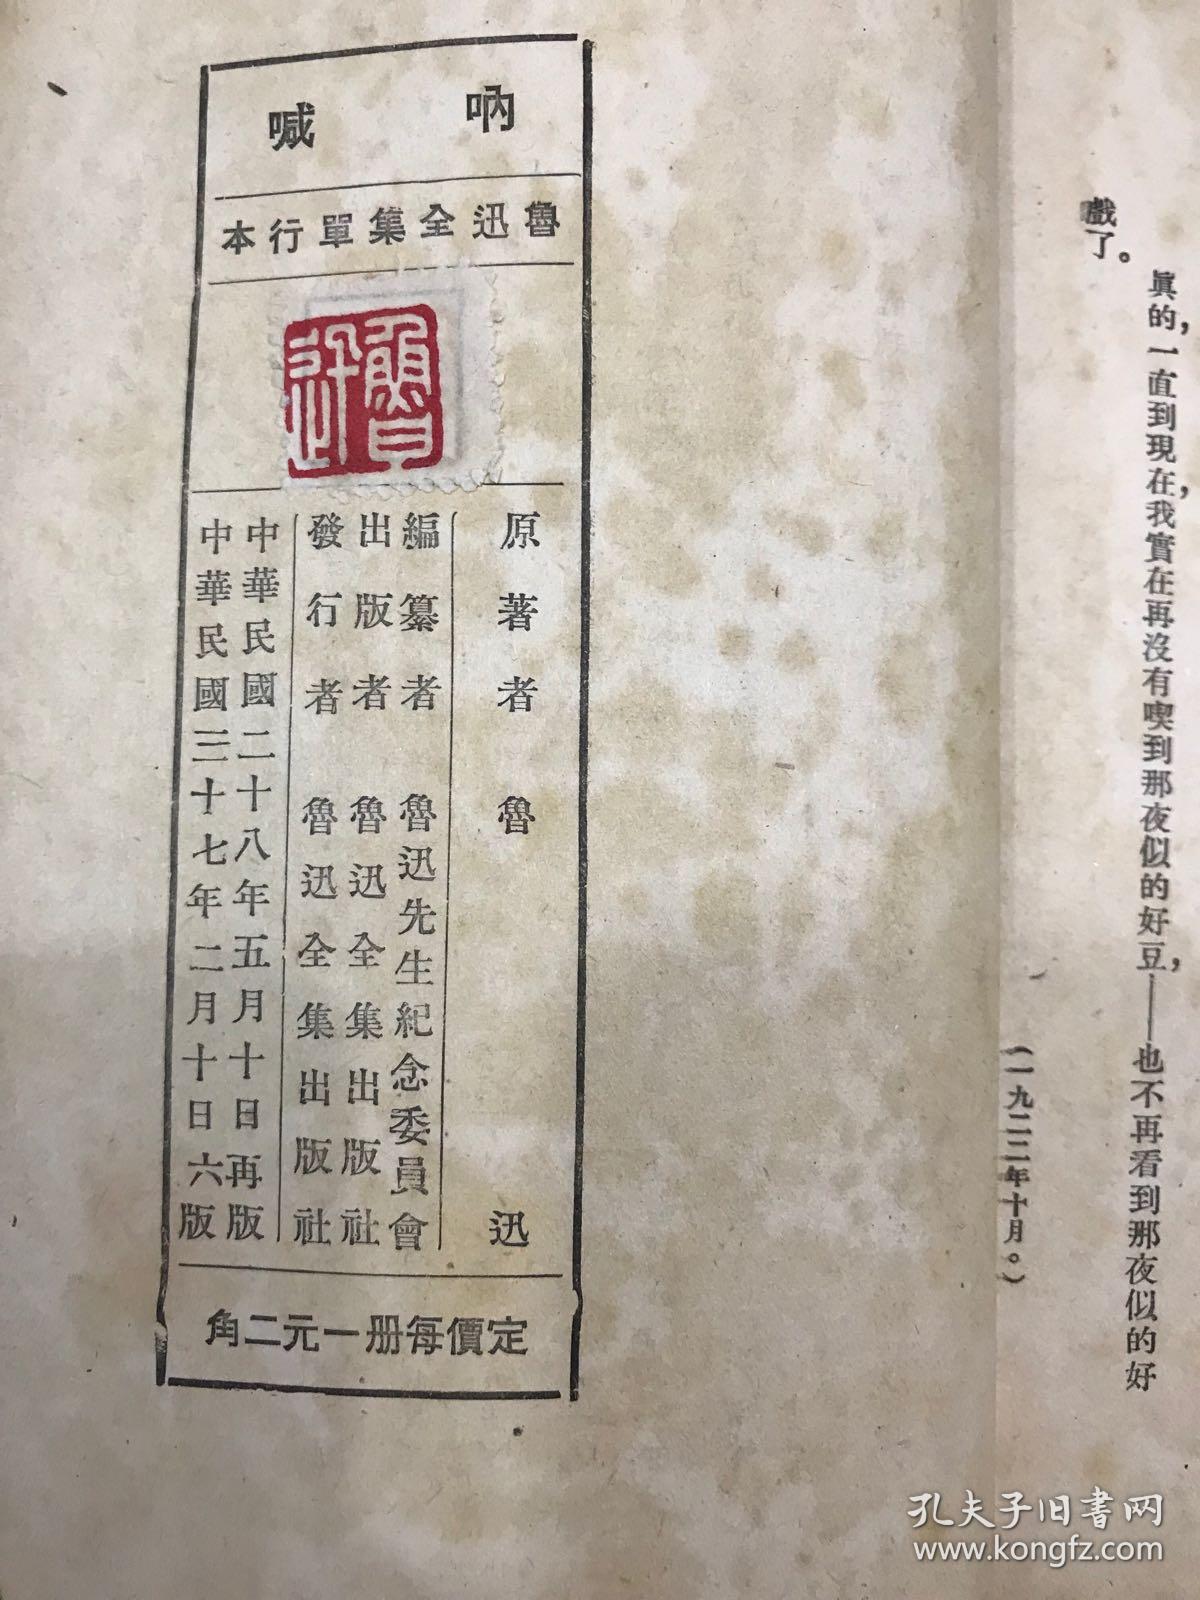 真的，一直到現在，我實在再沒有喫到那夜似的好豆，——也不再看到那夜似的好
戲了。
（一九二二年十月。）
吶喊
魯迅全集單行本
魯迅
原著者 魯迅
編纂者 魯迅先生紀念委員會
出版者 魯迅全集出版社
發行者 魯迅全集出版社
中華民國二十八年五月十日再版
中華民國三十七年二月十日六版
定價每册一元二角
孔夫子旧书网
www.kongfz.com